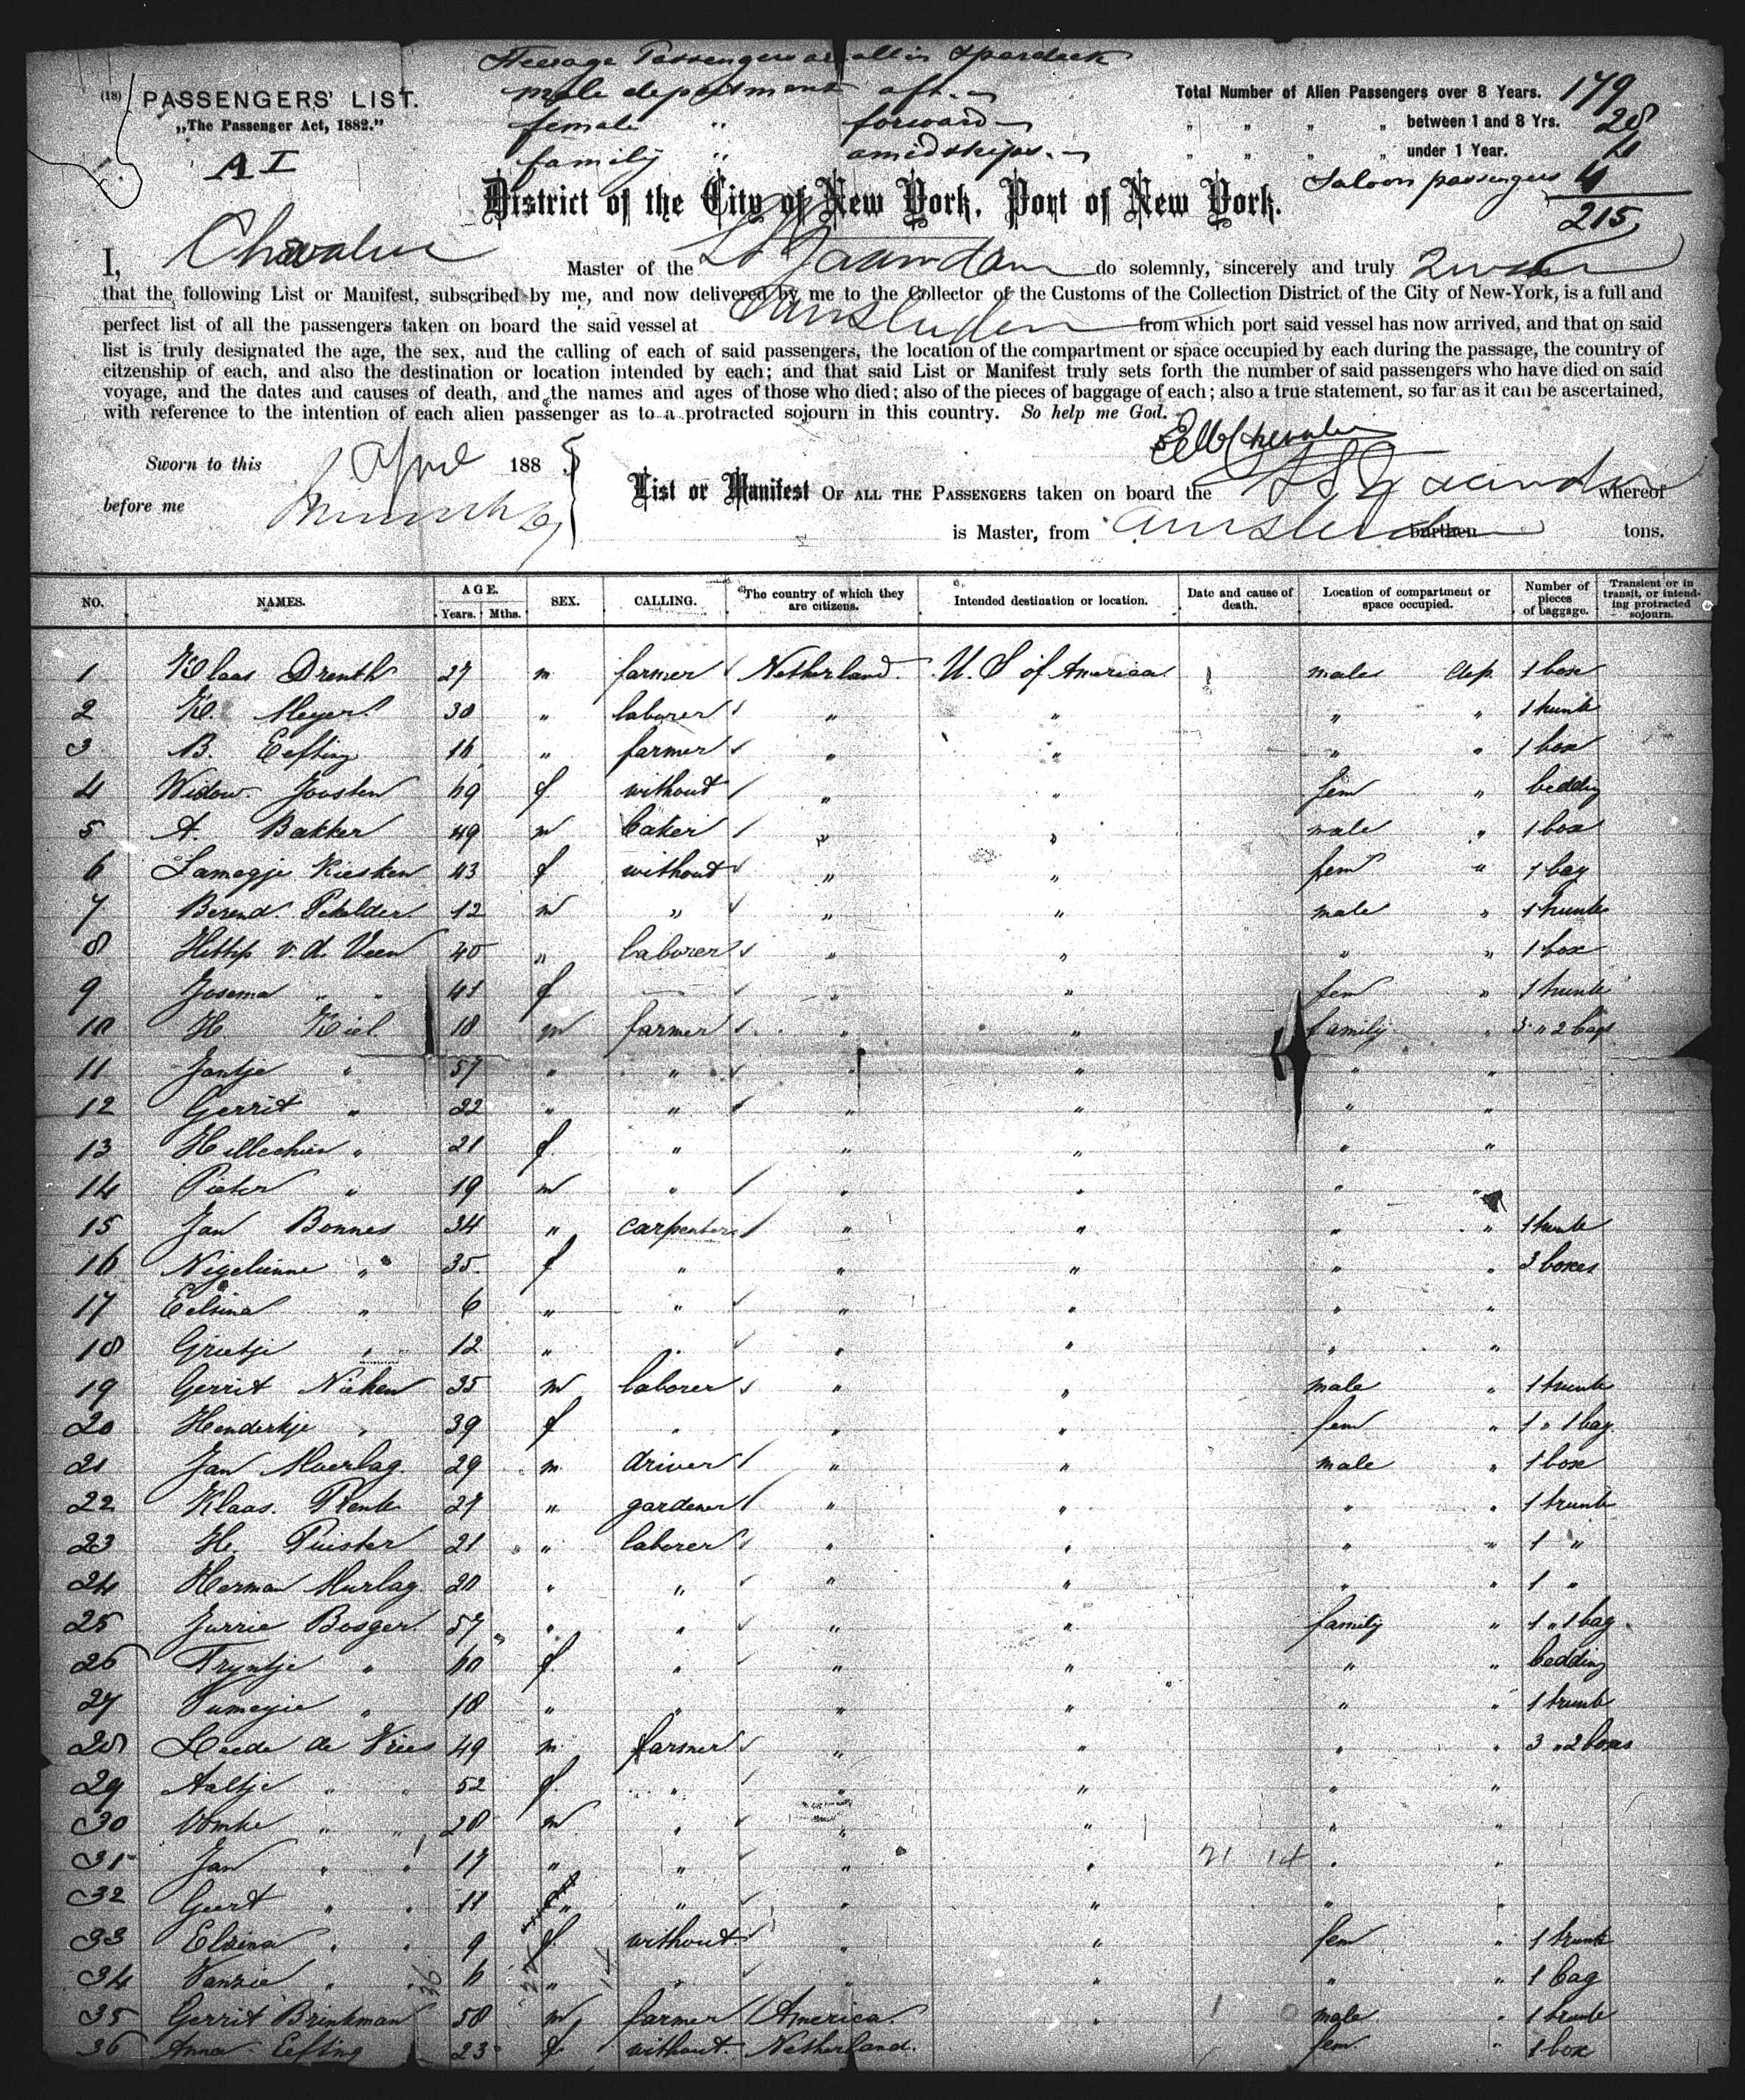 Steerage Passengers are all in Spardeck
male department aft.
female " forward
family " amidships.
(18) PASSENGERS' LIST.
„The Passenger Act, 1882."
A I
Total Number of Alien Passengers over 8 Years. 179
" " " " between 1 and 8 Yrs. 28
" " " " under 1 Year. 4
Saloon passengers 4
215
District of the City of New York, Port of New York.
I, Chevalier Master of the SS Zaandam do solemnly, sincerely and truly swear
that the following List or Manifest, subscribed by me, and now delivered by me to the Collector of the Customs of the Collection District of the City of New-York, is a full and
perfect list of all the passengers taken on board the said vessel at Amsterdam from which port said vessel has now arrived, and that on said
list is truly designated the age, the sex, and the calling of each of said passengers, the location of the compartment or space occupied by each during the passage, the country of
citzenship of each, and also the destination or location intended by each; and that said List or Manifest truly sets forth the number of said passengers who have died on said
voyage, and the dates and causes of death, and the names and ages of those who died; also of the pieces of baggage of each; also a true statement, so far as it can be ascertained,
with reference to the intention of each alien passenger as to a protracted sojourn in this country. So help me God.
Chevalier
Sworn to this April 188
before me
List or Manifest OF ALL THE PASSENGERS taken on board the SS Zaandam whereof
is Master, from Amsterdam burthen tons.
NO. NAMES. AGE. Years. Mths. SEX. CALLING. The country of which they are citizens. Intended destination or location. Date and cause of death. Location of compartment or space occupied. Number of pieces of baggage. Transient or in transit, or intending protracted sojourn.
1 Klaas Drenth 27 m farmer Netherland. U. S of America male dep. 1 box
2 K. Meyer 30 " laborer " " " " 1 trunk
3 B. Eefting 16 " farmer " " " " 1 box
4 Widow Joosten 69 f without " " fem " bedding
5 A. Bakker 49 m baker " " male " 1 box
6 Lamegje Kiesken 43 f without " " fem " 1 bag
7 Berend Pekelder 12 m " " " male " 1 trunk
8 v. d. Veen 40 " laborer " " " " 1 box
9 Josema " " 41 f — " " fem " 1 trunk
10 H. Kiel 18 m farmer " " family " 3 " 2 bags
11 Jantje " 57 " " " " " "
12 Gerrit " 22 " " " " " "
13 Hillechien " 21 f " " " " "
14 Pieter " 19 m " " " " "
15 Jan Bonnes 34 " carpenter " " " " 1 trunk
16 " 35 f " " " " " 3 boxes
17 Eelsina " 6 " " " " " "
18 Grietje " 12 " " " " " "
19 Gerrit Nieken 35 m laborer " " male " 1 trunk
20 Henderkje " 39 f " " " fem " 1 " 1 bag
21 Jan Moerlag 29 m driver " " male " 1 box
22 Klaas 27 " gardener " " " " 1 trunk
23 H. Puister 21 " laborer " " " " 1 "
24 Herman Murlag 20 " " " " " " 1 "
25 Jurrie Bosger 57 " " " " family " 1 " 1 bag
26 Tryntje " 60 f " " " " " bedding
27 " 18 " " " " " " 1 trunk
28 de Vries 49 m farmer " " " " 3 " 2 boxes
29 Aaltje " " 52 f " " " " "
30 " " 20 m " " " " "
31 Jan " " 17 " " " " 21 14 " "
32 Geert " " 11 " " " " " "
33 Elsina " " 9 f without " " fem " 1 trunk
34 " " 6 " " " " " " 1 bag
35 Gerrit Brinkman 58 m farmer America. " male " 1 trunk
36 Anna Eefting 23 f without Netherland. fem " 1 box